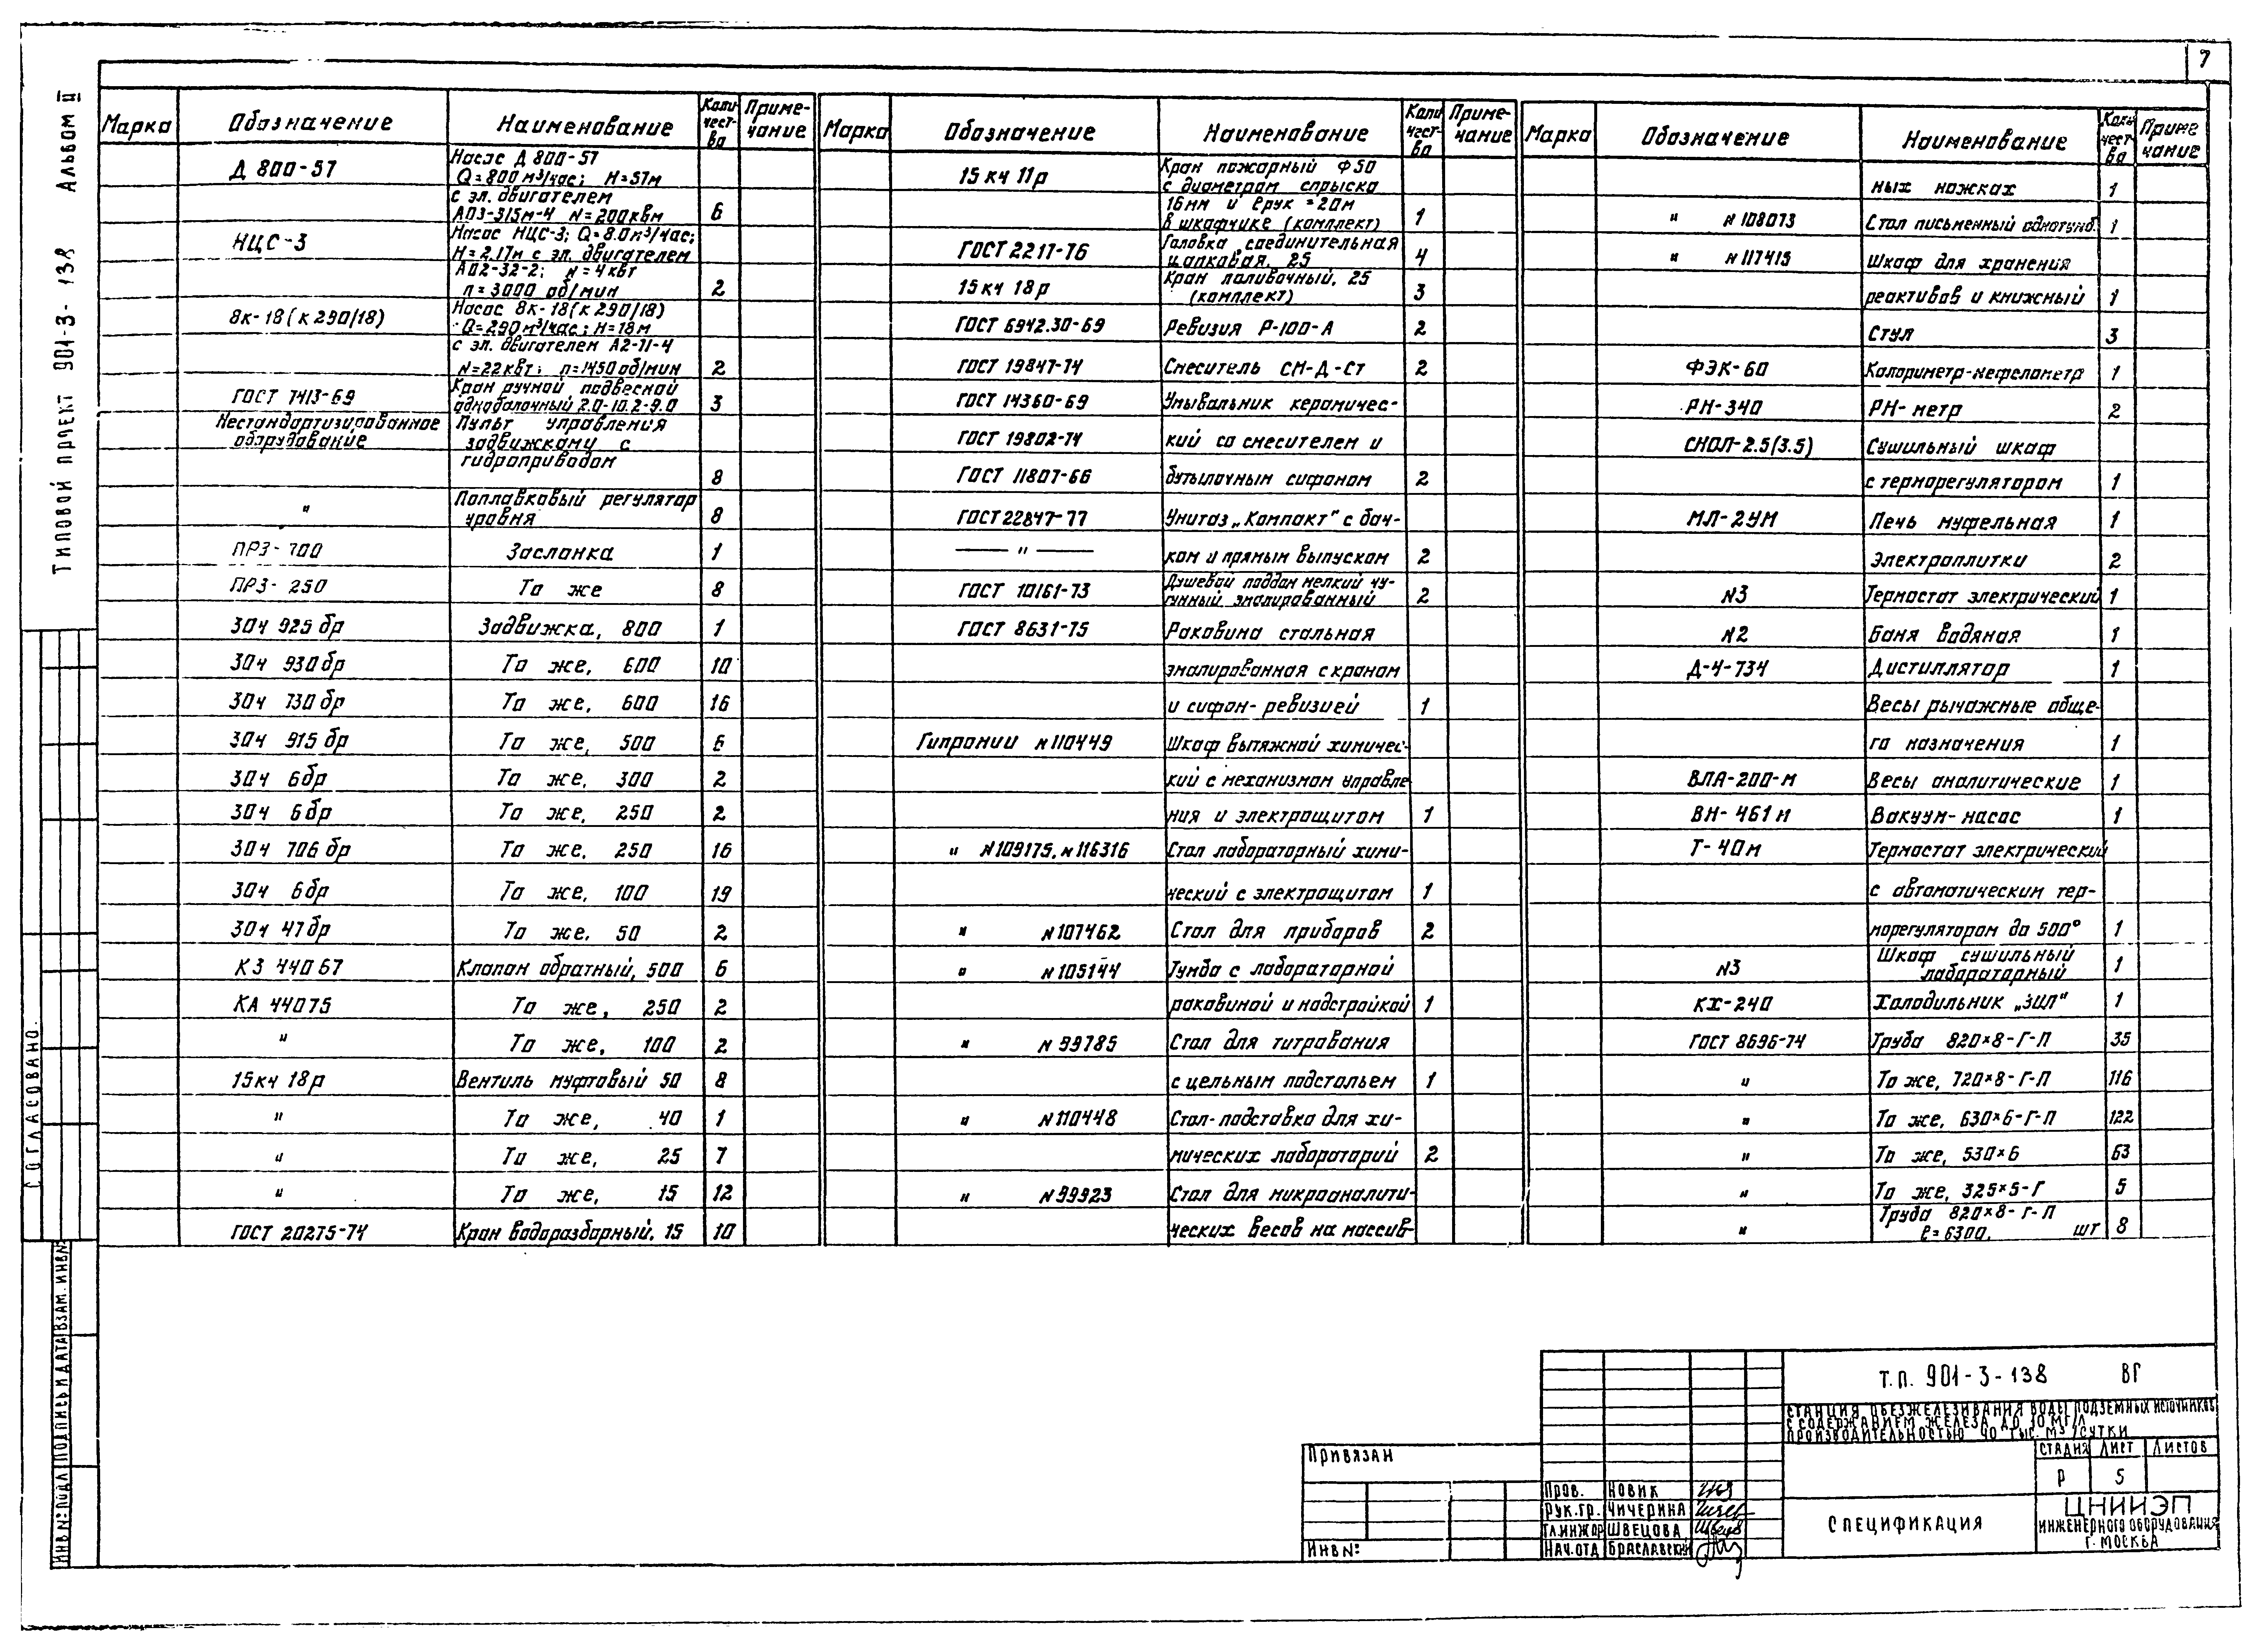 7
Альбом II
ТИПОВОЙ ПРОЕКТ 901-3-138
СОГЛАСОВАНО.
ВЗАМ. ИНВ№
ПОДПИСЬ И ДАТА
ИНВ№ ПОДЛ
Марка Обозначение Наименование Количества Примечание
Д 800-57 Насос Д 800-57
Q=800м³/час; H=57м
с эл. двигателем
АО3-315м-4 N=200квм 6
НЦС-3 Насос НЦС-3; Q=8.0м³/час;
H=2.17м с эл. двигателем
АО2-32-2; N=4квт
п=3000 об/мин 2
8к-18(к290/18) Насос 8к-18(к290/18)
Q=290м³/час; H=18м
с эл. двигателем А2-71-4
N=22квт; п=1450об/мин 2
ГОСТ 7413-69 Кран ручной подвесной
однобалочный 2.0-10.2-9.0 3
Нестандартизированное Пульт управления
оборудование задвижками с
гидроприводом
8
" Поплавковый регулятор
уровня 8
ПРЗ-700 Заслонка 1
ПРЗ-250 То же 8
30ч 925 бр Задвижка, 800 1
30ч 930бр То же, 600 10
30ч 730 бр То же, 600 16
30ч 915 бр То же, 500 6
30ч 6бр То же, 300 2
30ч 6бр То же, 250 2
30ч 706 бр То же, 250 16
30ч 6бр То же, 100 19
30ч 47бр То же. 50 2
КЗ 44067 Клапан обратный, 500 6
КА 44075 То же, 250 2
" То же, 100 2
15кч 18р Вентиль муфтовый 50 8
" То же, 40 1
" То же, 25 7
" То же, 15 12
ГОСТ 20275-74 Кран водоразборный, 15 10
Марка Обозначение Наименование Количества Примечание
15 кч 11р Кран пожарный Ф50
с диаметром спрыска
16мм и ℓрук =20м
в шкафчике (комплект) 1
ГОСТ 2217-76 Головка соединительная
цапковая, 25 4
15кч 18р Кран поливочный, 25
(комплект) 3
ГОСТ 6942.30-69 Ревизия Р-100-А 2
ГОСТ 19847-74 Смеситель СМ-Д-Ст 2
ГОСТ 14360-69 Умывальник керамичес-
ГОСТ 19802-74 кий со смесителем и
ГОСТ 11807-66 бутылочным сифоном 2
ГОСТ 22847-77 Унитаз „Компакт" с бач-
— " — ком и прямым выпуском 2
ГОСТ 10161-73 Душевой поддон мелкий чу-
гунный эмалированный 2
ГОСТ 8631-75 Раковина стальная
эмалированная с краном
и сифон-ревизией 1
Гипронии №110449 Шкаф вытяжной химичес-
кий с механизмом управле
ния и электрощитом 1
" №109175, №116316 Стол лабораторный хими-
ческий с электрощитом 1
" №107462 Стол для приборов 2
" №105144 Тумба с лабораторной
раковиной и надстройкой 1
" №99785 Стол для титрования
с цельным подстольем 1
" №110448 Стол-подставка для хи-
мических лабораторий 2
" №99923 Стол для микроаналити-
ческих весов на массив-
Марка Обозначение Наименование Количества Примечание
ных ножках 1
" №108073 Стол письменный однотумб. 1
" №117415 Шкаф для хранения
реактивов и книжный 1
Стул 3
ФЭК-60 Колориметр-нефелометр 1
РН-340 РН-метр 2
СНОЛ-2.5(3.5) Сушильный шкаф
с терморегулятором 1
МЛ-2УМ Печь муфельная 1
Электроплитки 2
№3 Термостат электрический 1
№2 Баня водяная 1
Д-4-734 Дистиллятор 1
Весы рычажные обще-
го назначения 1
ВЛА-200-М Весы аналитические 1
ВН-461м Вакуум-насос 1
Т-40м Термостат электрический
с автоматическим тер-
морегулятором до 500° 1
№3 Шкаф сушильный
лабораторный 1
КХ-240 Холодильник „ЗИЛ" 1
ГОСТ 8696-74 Труба 820×8-Г-П 35
" То же, 720×8-Г-П 116
" То же, 630×6-Г-П 122
" То же, 530×6 63
" То же, 325×5-Г 5
" Труба 820×8-Г-П
ℓ=6300. шт 8
Т.П. 901-3-138 ВГ
СТАНЦИЯ ОБЕЗЖЕЛЕЗИВАНИЯ ВОДЫ ПОДЗЕМНЫХ ИСТОЧНИКОВ
С СОДЕРЖАНИЕМ ЖЕЛЕЗА ДО 10 МГ/Л
ПРОИЗВОДИТЕЛЬНОСТЬЮ 40 ТЫС. М³/СУТКИ
СТАДИЯ ЛИСТ ЛИСТОВ
Р 5
СПЕЦИФИКАЦИЯ
ЦНИИЭП
ИНЖЕНЕРНОГО ОБОРУДОВАНИЯ
Г. МОСКВА
ПРИВЯЗАН
ИНВ№:
ПРОВ. НОВИК
РУК.ГР. ЧИЧЕРИНА
ГЛ.ИНЖ.ПР ШВЕЦОВА
НАЧ.ОТД БРАСЛАВСКИЙ